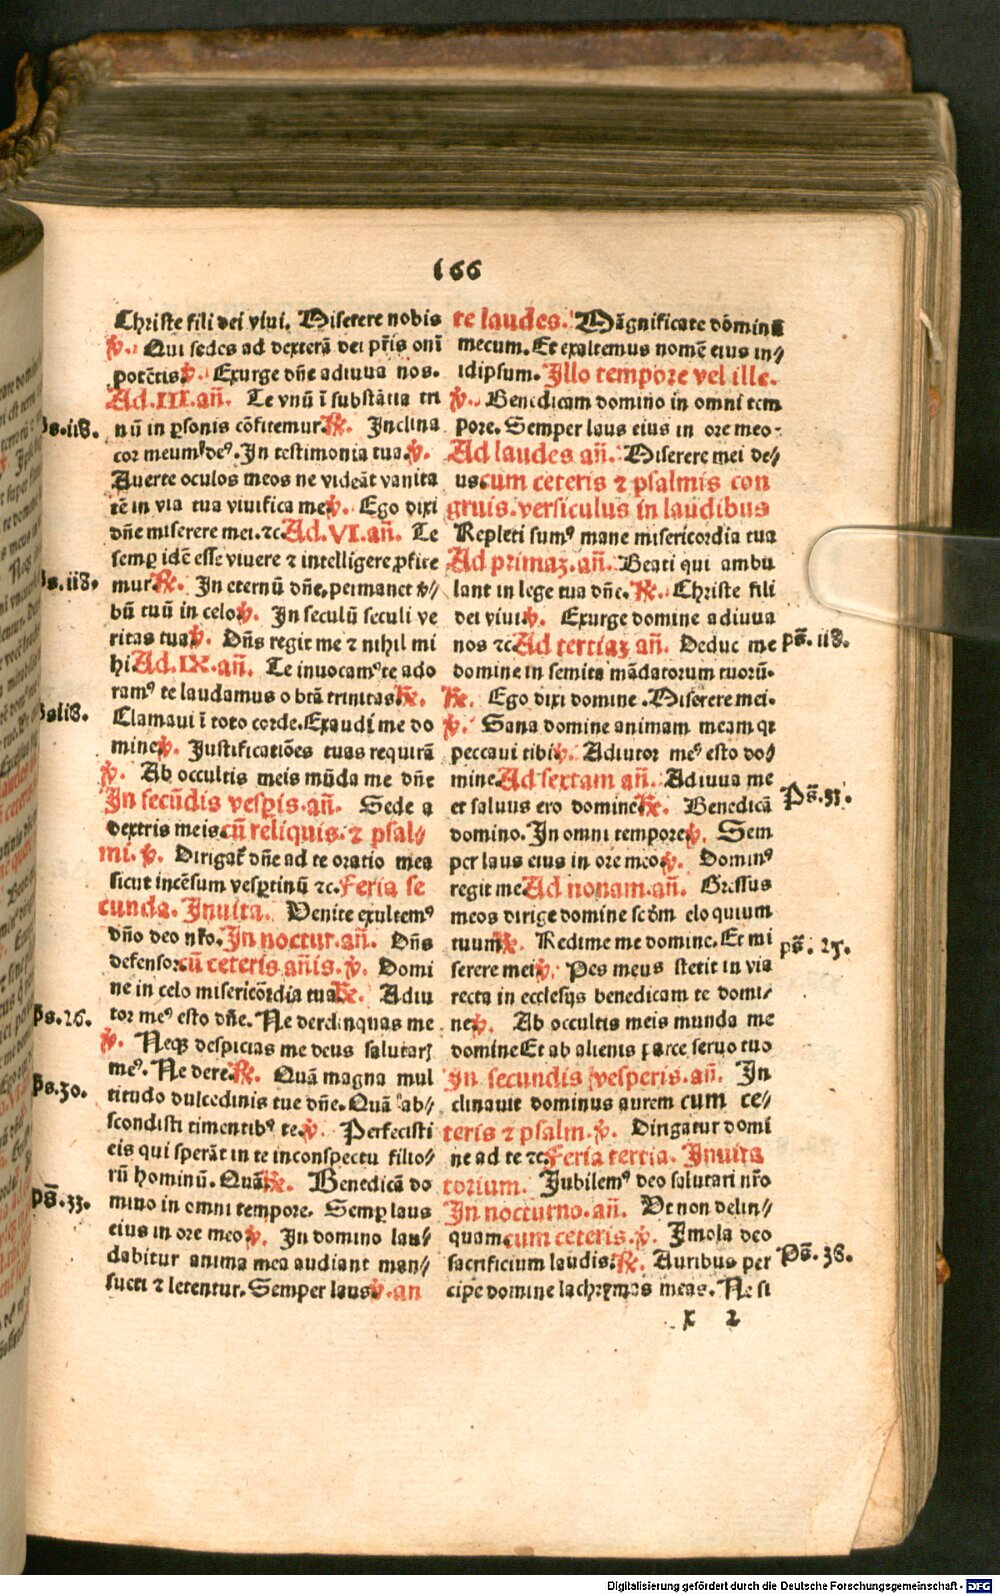 166
Christe fili dei viui. Miserere nobis
℣. Qui sedes ad dexterā dei pr̄is oni
potētis ℣. Exurge dn̄e adiuua nos.
Ad.III.an̄. Te vnū ī substātia tri
nū in ꝑsonis cōfitemur ℟. Inclina
cor meum deꝰ. In testimonia tua. ℣.
Auerte oculos meos ne videāt vanita
tē in via tua viuifica me ℣. Ego dixi
dn̄e miserere mei. ⁊c Ad.VI.an̄. Te
semꝑ idē esse viuere ⁊ intelligere ꝓfite
mur ℟. In eternū dn̄e, permanet v̄/
bū tuū in celo ℣. In seculū seculi ve
ritas tua ℣. Dn̄s regit me ⁊ nihil mi
hi Ad.IX.an̄. Te inuocamꝰ te ado
ramꝰ te laudamus o btā trinitas ℟.
Clamaui ī toto corde. Exaudi me do
mine ℣. Justificatiōes tuas requirā
℣. Ab occultis meis mūda me dn̄e
In secūdis vesꝑis. an̄. Sede a
dextris meis cū reliquis. ⁊ psal/
mi. ℣. Dirigat̄ dn̄e ad te oratio mea
sicut incēsum vesꝑtinū ⁊c. Feria se
cunda. Inuita. Venite exultemꝰ
dn̄o deo nr̄o. In noctur. an̄. Dn̄s
defensor cū ceteris an̄is. ℣. Domi
ne in celo misericōrdia tua ℟. Adiu
tor meꝰ esto dn̄e. Ne derelinquas me
℣. Neqꝫ despicias me deus salutarꝭ
meꝰ. Ne dere. ℟. Quā magna mul
titudo dulcedinis tue dn̄e. Quā ab/
scondisti timentibꝰ te. ℣. Perfecisti
eis qui sperāt in te inconspectu filio/
rū hominū. Quā ℟. Benedicā do
mino in omni tempore. Semꝑ laus
eius in ore meo ℣. In domino lau/
dabitur anima mea audiant man/
sueti ⁊ letentur. Semper laus ℣. an
te laudes. Māgnificate dōminū
mecum. Et exaltemus nomē eius in/
idipsum. Illo tempore vel ille.
℣. Benedicam domino in omni tem
pore. Semper laus eius in ore meo.
Ad laudes an̄. Miserere mei de/
us cum ceteris ⁊ psalmis con
gruis. versiculus in laudibus
Repleti sumꝰ mane misericordia tua
Ad primaꝫ. an̄. Beati qui ambu
lant in lege tua dn̄e. ℟. Christe fili
dei viui ℣. Exurge domine adiuua
nos ⁊c Ad tertiaꝫ an̄. Deduc me
domine in semita mādatorum tuorū.
℟. Ego dixi domine. Miserere mei.
℣. Sana domine animam meam qꝛ
peccaui tibi ℣. Adiutor meꝰ esto do/
mine Ad sextam an̄. Adiuua me
et saluus ero domine ℟. Benedicā
domino. In omni tempore ℣. Sem
per laus eius in ore meo ℣. Dominꝰ
regit me Ad nonam. an̄. Gressus
meos dirige domine scd̄m eloquium
tuum ℟. Redime me domine. Et mi
serere mei ℣. Pes meus stetit in via
recta in ecclesijs benedicam te domi/
ne ℣. Ab occultis meis munda me
domine Et ab alienis parce seruo tuo
In secundis vesperis. an̄. In
clinauit dominus aurem cum ce/
teris ⁊ psalm. ℣. Dirigatur domi
ne ad te ⁊c. Feria tertia. Inuita
torium. Jubilemꝰ deo salutari nr̄o
In nocturno. an̄. Vt non delin/
quam cum ceteris. ℣. Imola deo
sacrificium laudis. ℟. Auribus per
cipe domine lachrymas meas. Ne si
x 2
ps. 118.
ps. 118.
Ps. 26.
Ps. 30.
ps̄. 33.
ps̄. 118.
Ps̄. 33.
ps̄. 25.
Ps̄. 38.
Digitalisierung gefördert durch die Deutsche Forschungsgemeinschaft - DFG